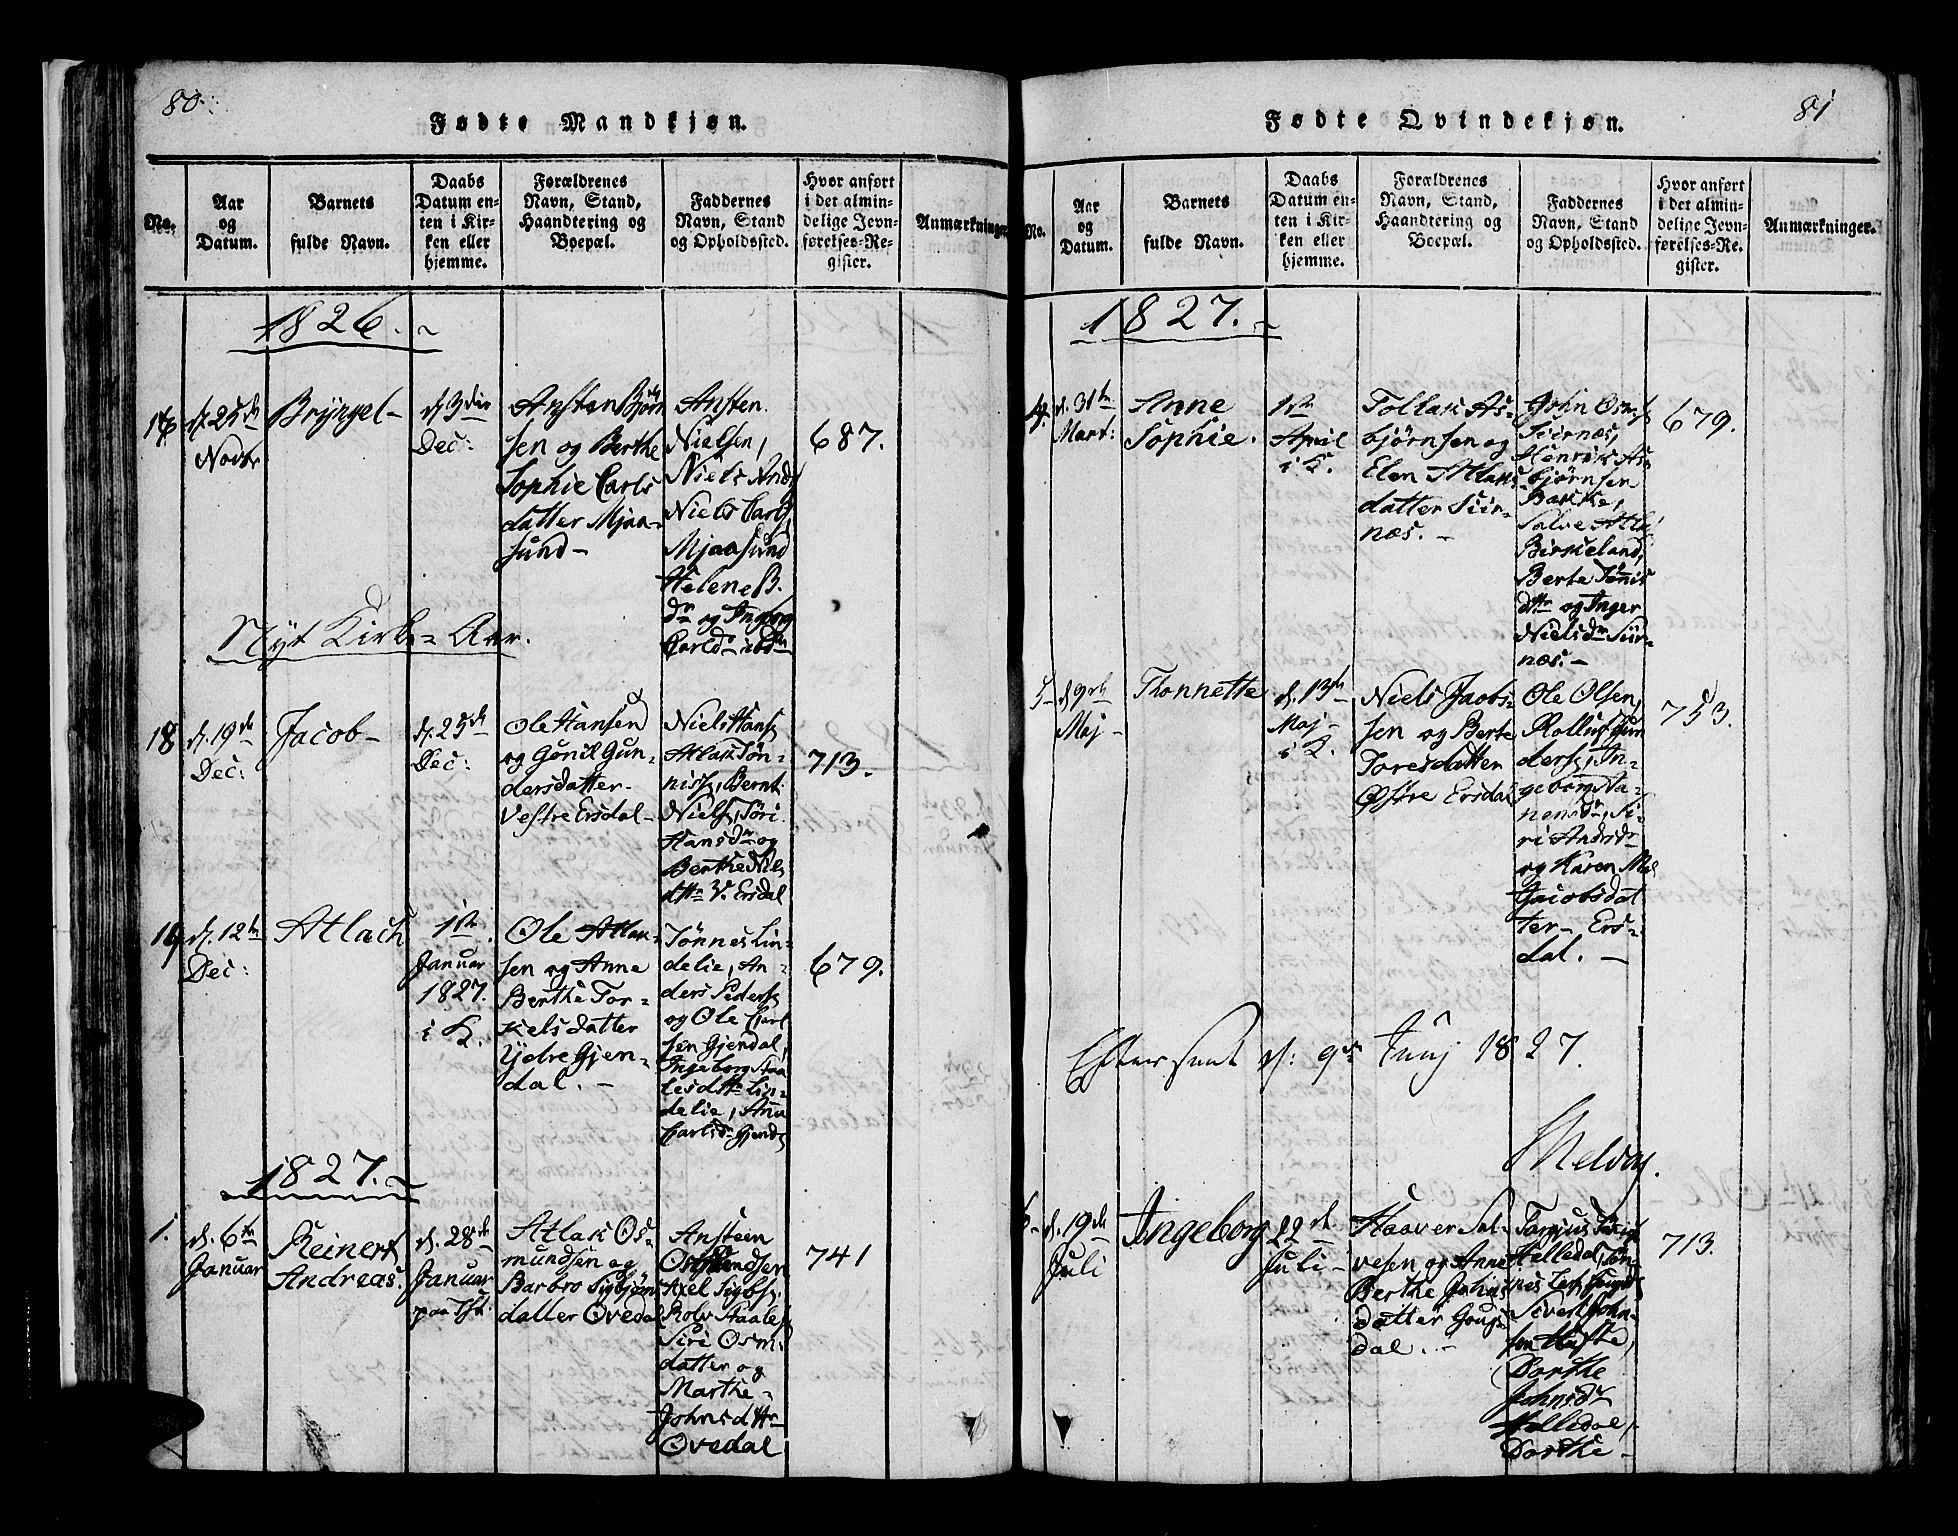 80.
Fødte Mandkjøn.
No.
Aar
og
Datum.
Barnets
fulde Navn.
Daabs
Datum en-
ten i Kir-
ken eller
hjemme.
Forældrenes
Navn, Stand,
Haandtering og
Boepæl.
Faddernes
Navn, Stand
og Opholdssted.
Hvor anført
i det almin-
delige Jevn-
førelses-Re-
gister.
Anmærkninger.
1826.
d. 25de
Novbr
Dec:
sen og Berthe
Sophie Carls
datter Mjaa-
sund-
Ansten
Nielsen,
Niels
Niels Carls
Mjaasund
Helene B.
dr og Ingborg
Carlsdr ibdm
687.
Nyt Kirke-Aar.
18
d. 19de
Dec:
Jacob-
d. 25de
Dec:
Ole Hansen
og Gunil Gun-
dersdatter
Vestre Ersdal-
Niels Hans
Atlak Tøn-
niss, Bernt
Niels, Tøri
Hansdr og
Berthe Niels
dttr V. Ersdal
713.
19
d. 12te
Dec:
Atlach
1te
Januar
1827.
i K.
Ole Atlak-
sen og Anne
Berthe Tor-
kelsdatter
Ydre Gjen-
dal.-
Tønnes Lin-
delie, An-
ders Peders
og Ole Carl
sen Gjendal,
Ingeborg Staa
lesdttr Lin-
delie, Anna
Carlsdr Gjend
679.
1827.
1.
d. 6te
Januar
Reinert
Andreas.
d. 28de
Januar
paa Tst.
Atlak Os-
mundsen og
Barbro Sigbjørn
datter Ovedal
Ansteen
Osmundsen
Axel Sigbs,
Rolv Staales
Siri Osm
datter og
Marthe
Johnsdttr
Ovedal
741
81
Fødte Qvindekjøn.
No.
Aar
og
Datum.
Barnets
fulde Navn.
Daabs
Datum en-
ten i Kir-
ken eller
hjemme.
Forældrenes
Navn, Stand,
Haandtering og
Boepæl.
Faddernes
Navn, Stand
og Opholdssted.
Hvor anført
i det almin-
delige Jevn-
førelses-Re-
gister.
Anmærkninger.
1827.
4.
d. 31te
Mart:
Anne
Sophie.
1te
April
i K.
Tollak As-
bjørnsen og
Elen Atlaks
datter Siir-
næs.-
John Osm
Siirnæs,
Henrik As-
bjørnsen
Bakke,
Salve Atla
Birkeland,
Berte Tønis
dttr og Inger
Nielsdr Siir-
næs.-
679.
5
d 9de
Maj-
Thonnette
d. 13de
Maj-
i K.
Niels Jacob-
sen og Berte
Toresdatter
Østre Ersdal
Ole Olsen,
Rollus Gun
ders, In-
geborg Ta-
nensdr, Si-
ri Andrsdr
og Karen Ma
Jacobsdat
ter, Ers-
dal.-
753.
Efterseet d: 9de Junij 1827.
6
d. 19de
Juli
Ingeborg
22de
Juli-
Haaver Sal-
vesen og Anne
Berthe
datter
dal.-
Helledal,
Sivert John-
sen
Dorthe
Johnsdr
Helledal,
Dorthe-
713.